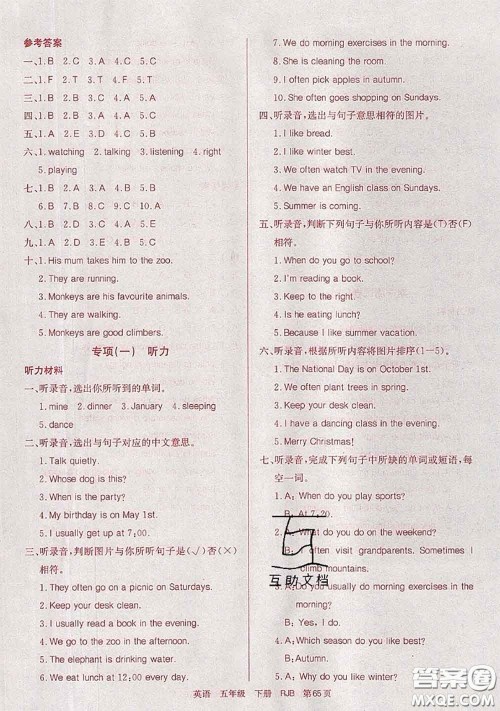 参考答案
一、1. B  2. C  3. A  4. C  5. C
二、1. F  2. T  3. F  4. T  5. T
三、1. B  2. C  3. B  4. C  5. A
四、1. B  2. B  3. A  4. A  5. B
五、1. D  2. C  3. A  4. E  5. B
六、1. watching  2. talking  3. listening  4. right
5. playing
七、1. B  2. B  3. C  4. C  5. A
6. B  7. C  8. B  9. C  10. A
八、1. B  2. A  3. C  4. B  5. A
九、1. C  2. A  3. D  4. E  5. B
十、1. His mum takes him to the zoo.
2. They are running.
3. Monkeys are his favourite animals.
4. They are walking.
5. Monkeys are good climbers.
专项(一)  听力
听力材料
一、听录音,选出你所听到的单词。
1. mine  2. dinner  3. January  4. sleeping
5. dance
二、听录音,选出与句子对应的中文意思。
1. Talk quietly.
2. Whose dog is this?
3. When is the party?
4. My birthday is on May 1st.
5. I usually get up at 7:00.
三、听录音,判断图片与你所听句子是(√)否(×)
相符。
1. They often go on a picnic on Saturdays.
2. Keep your desk clean.
3. I usually read books in the evening.
4. We go to the zoo in the afternoon.
5. The elephant is drinking water.
6. I eat dinner in the evening.
7. We do morning exercises in the morning.
8. She is cleaning the room.
9. I often pick apples in autumn.
10. She often goes shopping on Sundays.
四、听录音,选出与句子意思相符的图片。
1. I like bread.
2. I like winter best.
3. We often watch TV in the evening.
4. We have an English class on Sundays.
5. Summer is coming.
五、听录音,判断下列句子与你所听内容是(T)否(F)
相符。
1. When do you go to school?
2. I often read books in the evening.
3. Keep to the right.
4. Is he eating lunch?
5. Because I like summer vacation.
六、听录音,根据所听内容将图片排序(1—5)。
1. The National Day is on October 1st.
2. We often plant trees in spring.
3. Keep your desk clean.
4. I have a dancing class in the evening.
5. Merry Christmas!
七、听录音,完成下列句子中所缺的单词或短语,每
空一词。
1. A: When do you play sports?
B: At 7:20.
2. A: What do you do on the weekend?
B: I often visit grandparents. Sometimes I
climb mountains.
3. A: Do you usually do morning exercises in the
morning?
B: Yes, I do.
4. A: Which season do you like best?
B: Winter.
5. A: What are you doing?
互助文档
英语  五年级  下册  RJB  第65页
答案圈
MXQE.COM